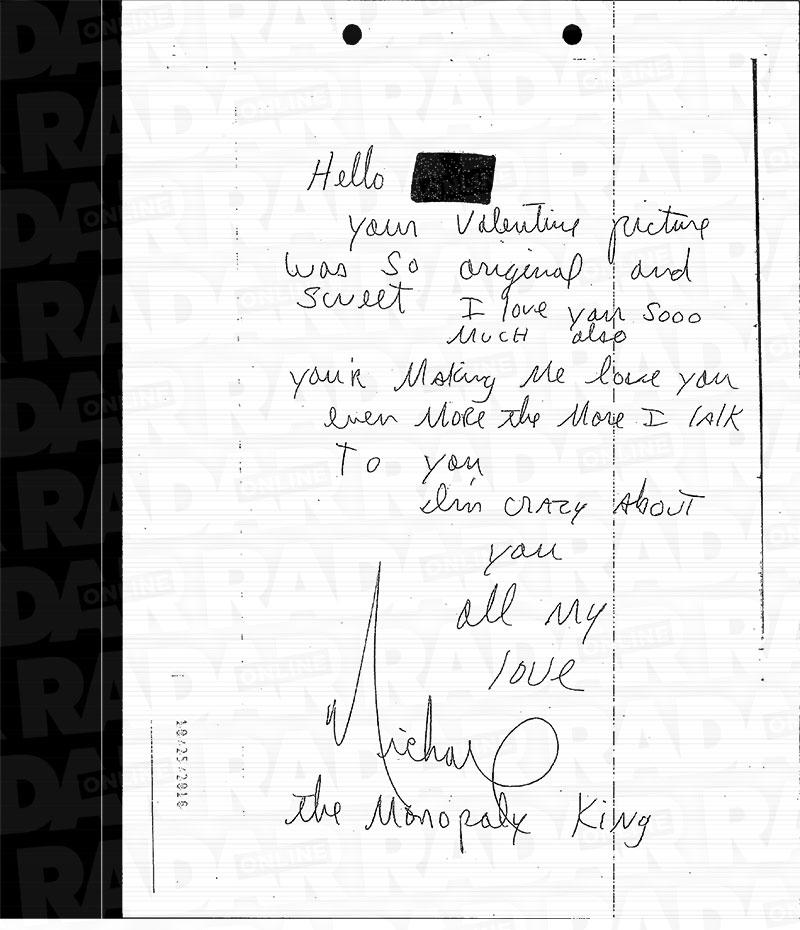 Hello
your Valentine picture
was so original and
sweet I love you sooo
MUCH also
you'r Making Me love you
even More the More I talk
To you
I'm CRAZY AbOUT
you
all My
love
Michael
the Monopaly King
10/25/2016
RADAR ONLINE